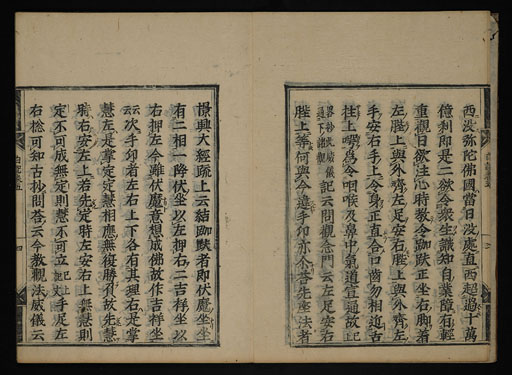 西没弥陀佛國當日没處直西超過十萬
億刹即是二欲令衆生識知自業障有輕
重觀日欲注心時教令跏趺正坐右脚著
左䏶上與外齊左足安右䏶上與外齊左
手安右手上令身正直合口齒勿相近舌
往上腭爲令咽喉及鼻中氣道宣通故記
記云問觀念門云左足安右
䏶上等何與今違手印亦不吉先座法者
憬興大經疏上云結跏趺者即伏魔坐坐
有二相一降伏坐以左押右二吉祥坐以
右押左今雖伏魔意想成佛故作吉祥坐
云次手印者左右上下各有其理右是掌
慧左是掌定定慧相應無復勝劣故先慧
時右安左上若先定時左安右上無慧則
定不可成無定則慧不可立記上手足左
右捴可知古抄問荅云今教觀法威儀云